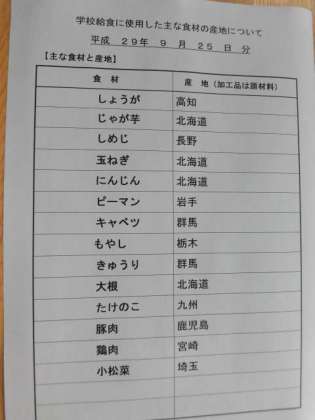 学校給食に使用した主な食材の産地について
平成 29年 9 月 25 日 分
【主な食材と産地】
食 材 産 地（加工品は原材料）
しょうが 高知
じゃが芋 北海道
しめじ 長野
玉ねぎ 北海道
にんじん 北海道
ピーマン 岩手
キャベツ 群馬
もやし 栃木
きゅうり 群馬
大根 北海道
たけのこ 九州
豚肉 鹿児島
鶏肉 宮崎
小松菜 埼玉